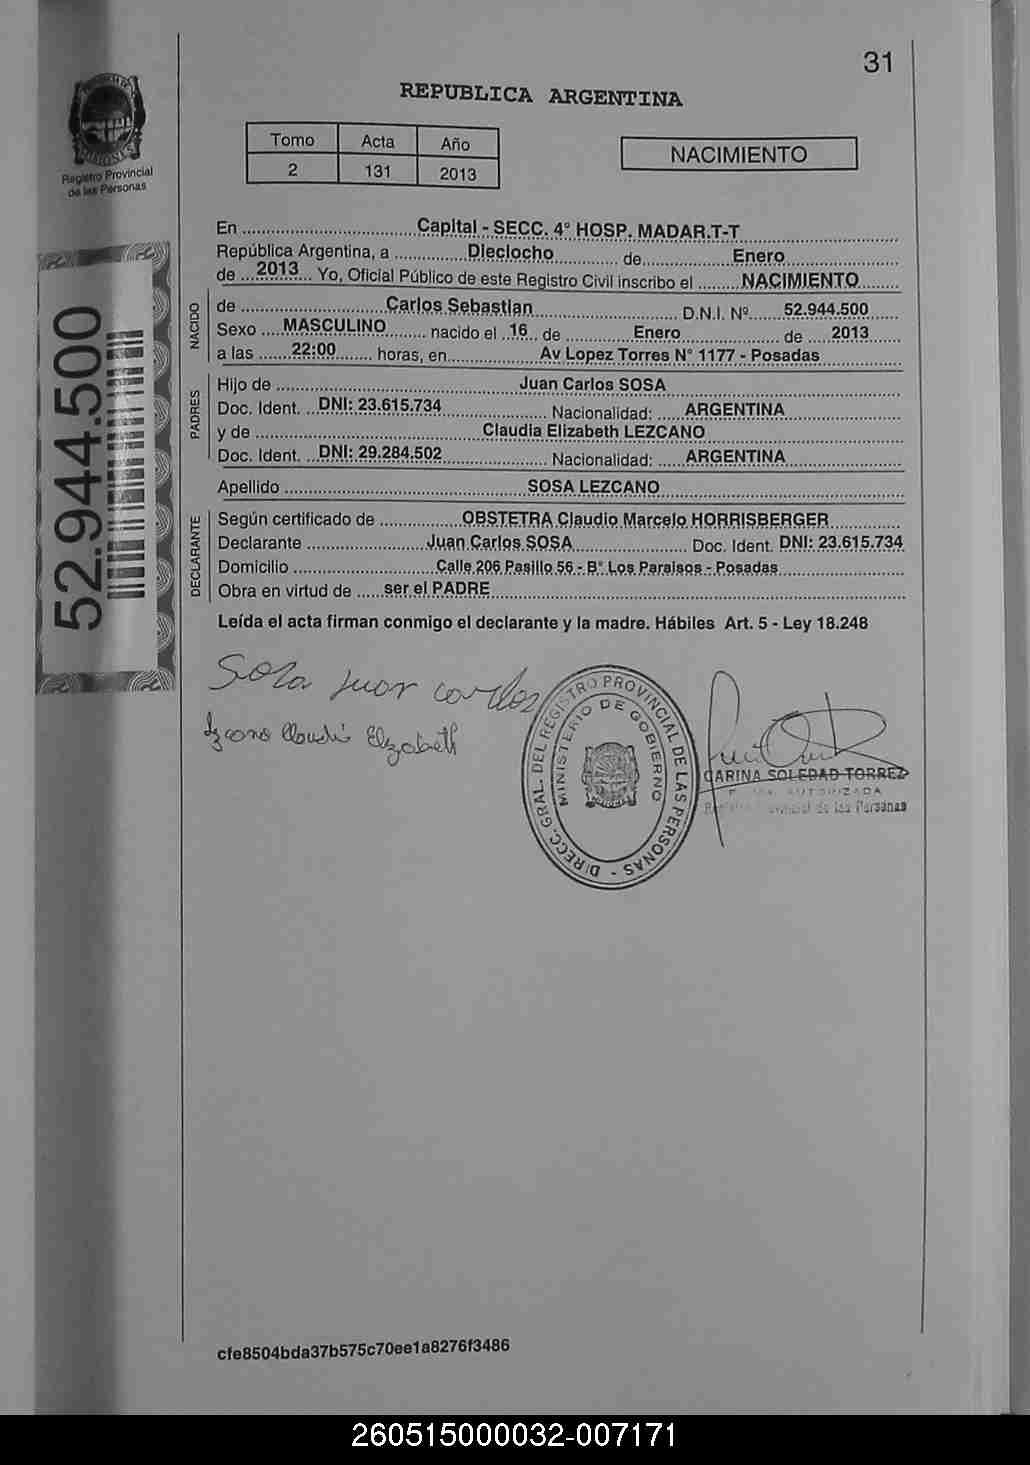 31
REPUBLICA ARGENTINA
Registro Provincial
de las Personas
Tomo Acta Año
2 131 2013
NACIMIENTO
52.944.500
En Capital - SECC. 4° HOSP. MADAR.T-T
República Argentina, a Dieciocho de Enero
de 2013 Yo, Oficial Público de este Registro Civil inscribo el NACIMIENTO
NACIDO
de Carlos Sebastian D.N.I. Nº 52.944.500
Sexo MASCULINO nacido el 16 de Enero de 2013
a las 22:00 horas, en Av Lopez Torres N° 1177 - Posadas
PADRES
Hijo de Juan Carlos SOSA
Doc. Ident. DNI: 23.615.734 Nacionalidad: ARGENTINA
y de Claudia Elizabeth LEZCANO
Doc. Ident. DNI: 29.284.502 Nacionalidad: ARGENTINA
Apellido SOSA LEZCANO
DECLARANTE
Según certificado de OBSTETRA Claudio Marcelo HORRISBERGER
Declarante Juan Carlos SOSA Doc. Ident. DNI: 23.615.734
Domicilio Calle 206 Pasillo 56 - B° Los Paraisos - Posadas
Obra en virtud de ser el PADRE
Leída el acta firman conmigo el declarante y la madre. Hábiles Art. 5 - Ley 18.248
Sosa Juan Carlos
Claudia Elizabeth
DIRECC. GRAL. DEL REGISTRO PROVINCIAL DE LAS PERSONAS -
MINISTERIO DE GOBIERNO
CARINA SOLEDAD TORREZ
AUTORIZADA
de las Personas
cfe8504bda37b575c70ee1a8276f3486
260515000032-007171